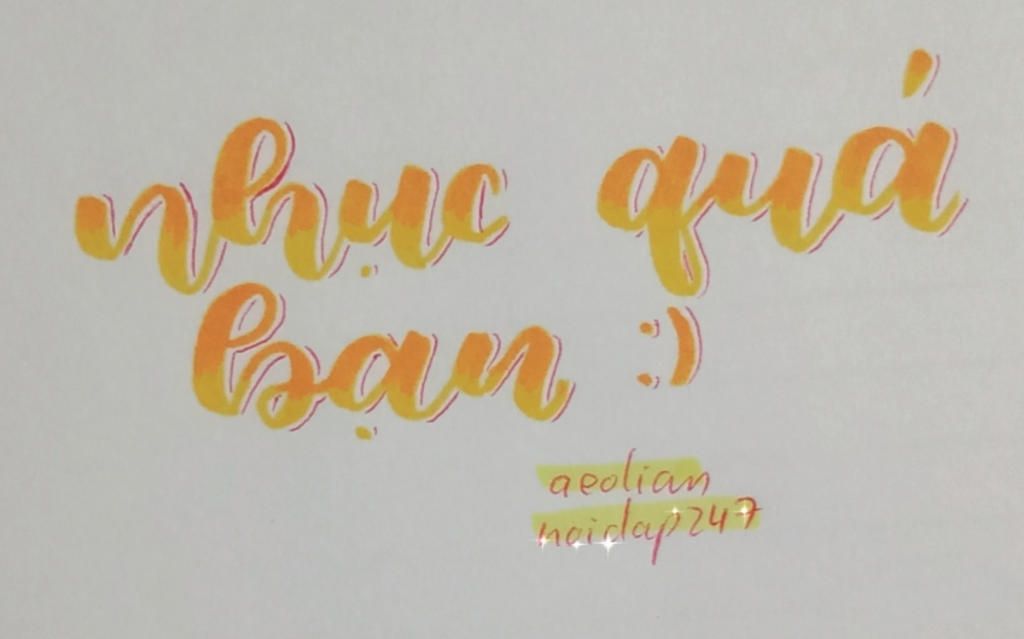 nhục quá
bạn :)
aeolian
hoidap247